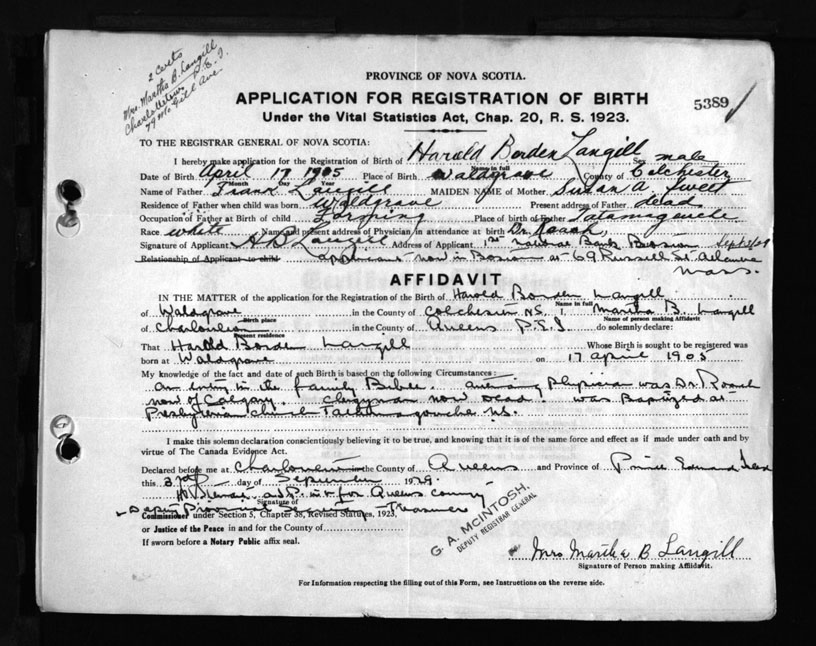 2 Certs
Mrs. Martha B. Langill
Charlottetown P.E.I.
79 McGill Ave.
PROVINCE OF NOVA SCOTIA.
APPLICATION FOR REGISTRATION OF BIRTH
5389
Under the Vital Statistics Act, Chap. 20, R. S. 1923.
TO THE REGISTRAR GENERAL OF NOVA SCOTIA:
I hereby make application for the Registration of Birth of Harold Borden Langill Sex male
Name in full
Date of Birth April 17 1905 Place of Birth Waldgrave County of Colchester
Month Day Year
Name of Father Frank Langill MAIDEN NAME of Mother Susan A. Sweet
Residence of Father when child was born Waldgrave Present address of Father dead
Occupation of Father at Birth of child Farming Place of birth of Father Tatamagouche
Race white Name and present address of Physician in attendance at birth Dr. Roach
Signature of Applicant H B Langill Address of Applicant 1st National Bank Boston
Relationship of Applicant to child applicant now in Boston at 69 Russell St. Atlantic
Mass.
AFFIDAVIT
IN THE MATTER of the application for the Registration of the Birth of Harold Borden Langill
Name in full
of Waldgrave in the County of Colchester N.S. I, Martha B. Langill
Birth place Name of person making Affidavit
of Charlottetown in the County of Queens P.E.I do solemnly declare:
Present residence
That Harold Borden Langill Whose Birth is sought to be registered was
born at Waldgrave on 17 April 1905
My knowledge of the fact and date of such Birth is based on the following Circumstances:
An entry in the family Bible. Attending Physician was Dr. Roach
now of Calgary. Clergyman now dead. was Baptized at
Presbyterian church Tatamagouche N.S.
I make this solemn declaration conscientiously believing it to be true, and knowing that it is of the same force and effect as if made under oath and by
virtue of The Canada Evidence Act.
Declared before me at Charlottetown the County of Queens and Province of Prince Edward Island
this 3rd day of September 1929.
in & for Queens County
Signature of
Deputy Provincial Secretary-Treasurer
Commissioner under Section 5, Chapter 38, Revised Statutes, 1923
or Justice of the Peace in and for the County of
If sworn before a Notary Public affix seal.
G. A. MCINTOSH,
DEPUTY REGISTRAR GENERAL
Mrs Martha B Langill
Signature of Person making Affidavit.
For Information respecting the filling out of this Form, see Instructions on the reverse side.